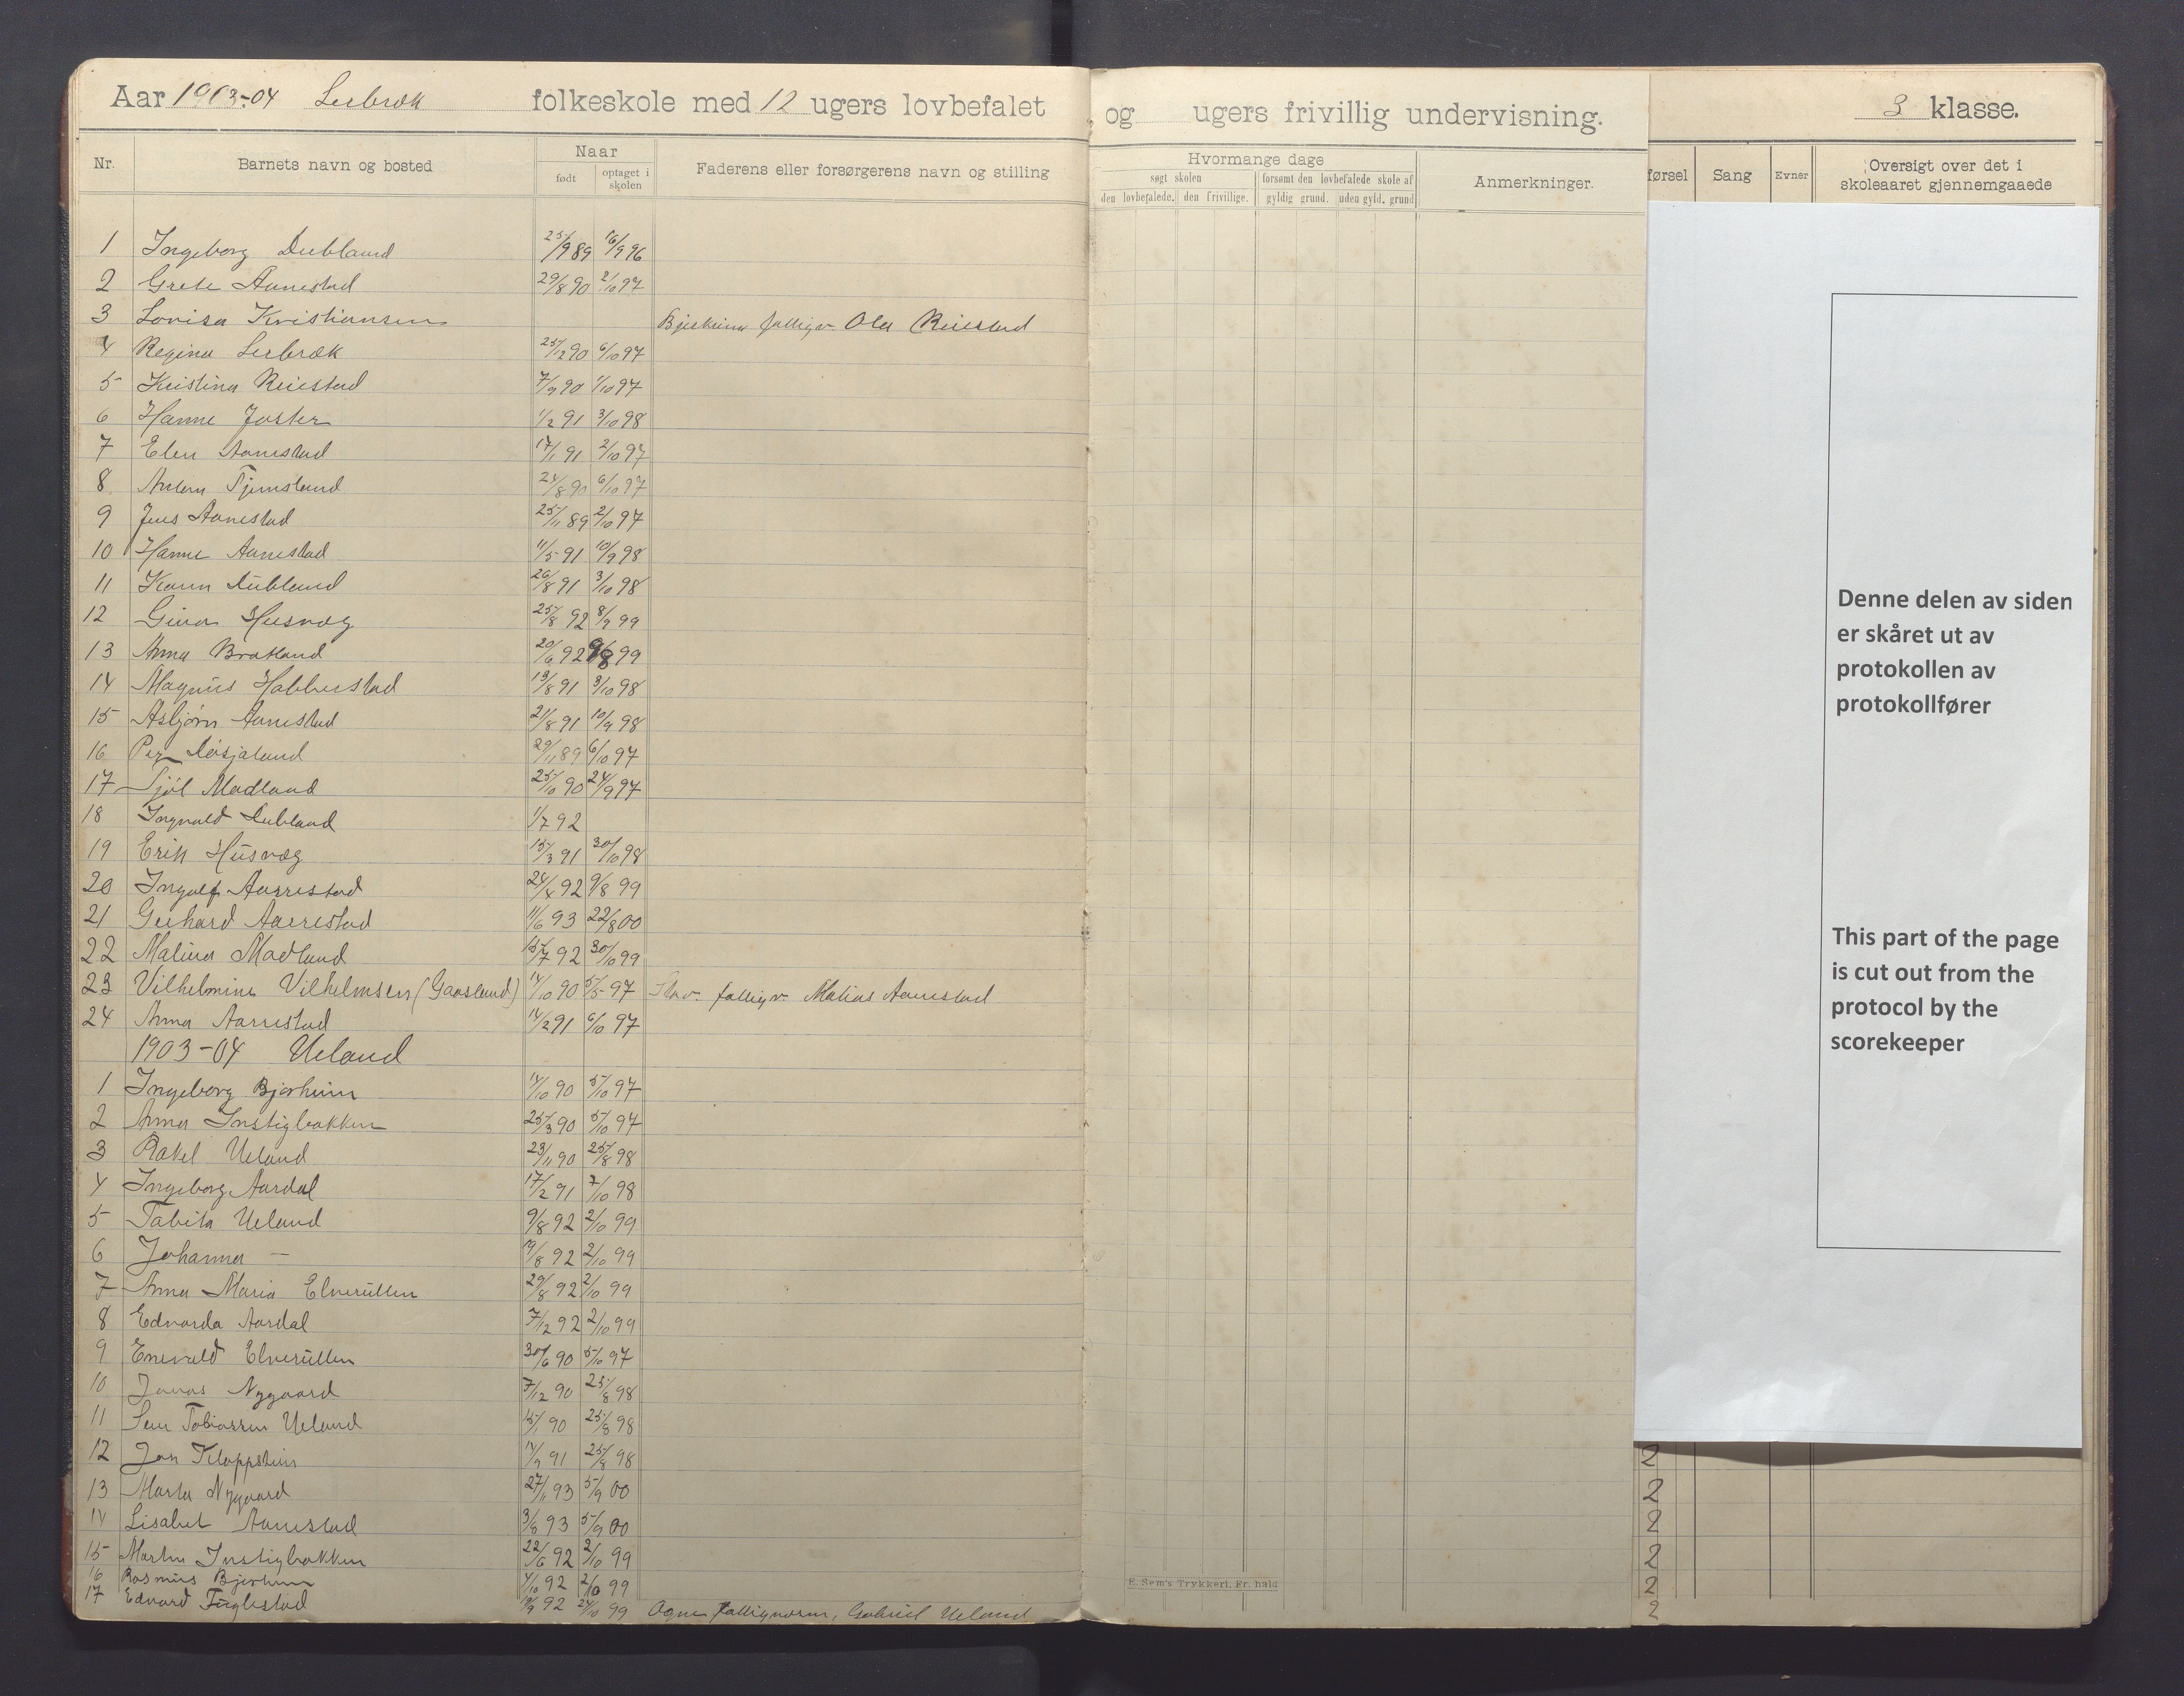 Aar 1903-04 Lerbræk folkeskole med 12 ugers lovbefalet og ugers frivillig undervisning. 3 klasse.
Nr. Barnets navn og bosted Naar født optaget i skolen Faderens eller forsørgerens navn og stilling Hvormange dage søgt skolen den lovbefalede. den frivillige. forsømt den lovbefalede skole af gyldig grund. uden gyld. grund Anmerkninger. førsel Sang Evner Oversigt over det i skoleaaret gjennemgaaede
1 Ingeborg Dubland 25/9 89 16/9 96
2 Grete Aanestad 29/8 90 2/10 97
3 Lovisa Kristiansen Bjerkreim fattigv. Ola Reiestad
4 Regina Lerbræk 25/12 90 6/10 97
5 Kristina Reiestad 7/9 90 1/10 97
6 Hanne 1/2 91 3/10 98
7 Elen Aanestad 17/1 91 2/10 97
8 Tjemsland 24/8 90 6/10 97
9 Jens Aanestad 25/11 89 2/10 97
10 Hanne Aanestad 11/5 91 10/9 98
11 Karen Dubland 26/8 91 3/10 98
12 Gina Husvæg 25/8 92 8/9 99
13 Anna Bratland 20/6 92 9/8 99
14 Magnus Habberstad 13/8 91 3/10 98
15 Asbjørn Aanestad 21/8 91 10/9 98
16 Per Døsjaland 29/11 89 6/10 97
17 Sjøl Madland 25/10 90 24/9 97
18 Ingvald Dubland 1/7 92
19 Erik Husvæg 15/3 91 30/10 98
20 Ingolf Aarrestad 24/4 92 9/8 99
21 Gerhard Aarrestad 11/6 93 22/8 00
22 Malina Madland 15/7 92 30/10 99
23 Vilhelmine Vilhelmsen (Gaasland) 14/10 90 5/5 97 Stav. fattigv. Matias Aanestad
24 Anna Aarrestad 14/2 91 6/10 97
1903-04 Ueland
1 Ingeborg Bjørheim 14/10 90 5/10 97
2 Anna Instigbakken 25/3 90 5/10 97
3 Rakel Ueland 23/11 90 25/8 98
4 Ingeborg Aardal 17/2 91 7/10 98
5 Tabita Ueland 9/8 92 2/10 99
6 Johanna — 19/8 92 2/10 99
7 Anna Maria Elverullen 29/8 92 2/10 99
8 Edvarda Aardal 7/12 92 2/10 99
9 Enevald Elverullen 30/6 90 5/10 97
10 Jonas Nygaard 7/12 90 25/8 98
11 Sem Tobiassen Ueland 15/1 90 25/8 98
12 Jon Kloppstein 14/9 91 25/8 98
13 Marta Nygaard 27/11 93 5/9 00
14 Lisabet Aanestad 3/8 93 5/9 00
15 Martin Instigbakken 22/6 92 2/10 99
16 Rasmus Bjørheim 4/10 92 2/10 99
17 Edvard Fuglestad 19/9 92 24/10 99 Ogne fattigvæsen, Gabriel Ueland
Denne delen av siden
er skåret ut av
protokollen av
protokollfører
This part of the page
is cut out from the
protocol by the
scorekeeper
2
2
2
2
2
2
E. Sem's Trykkeri, Fr. hald